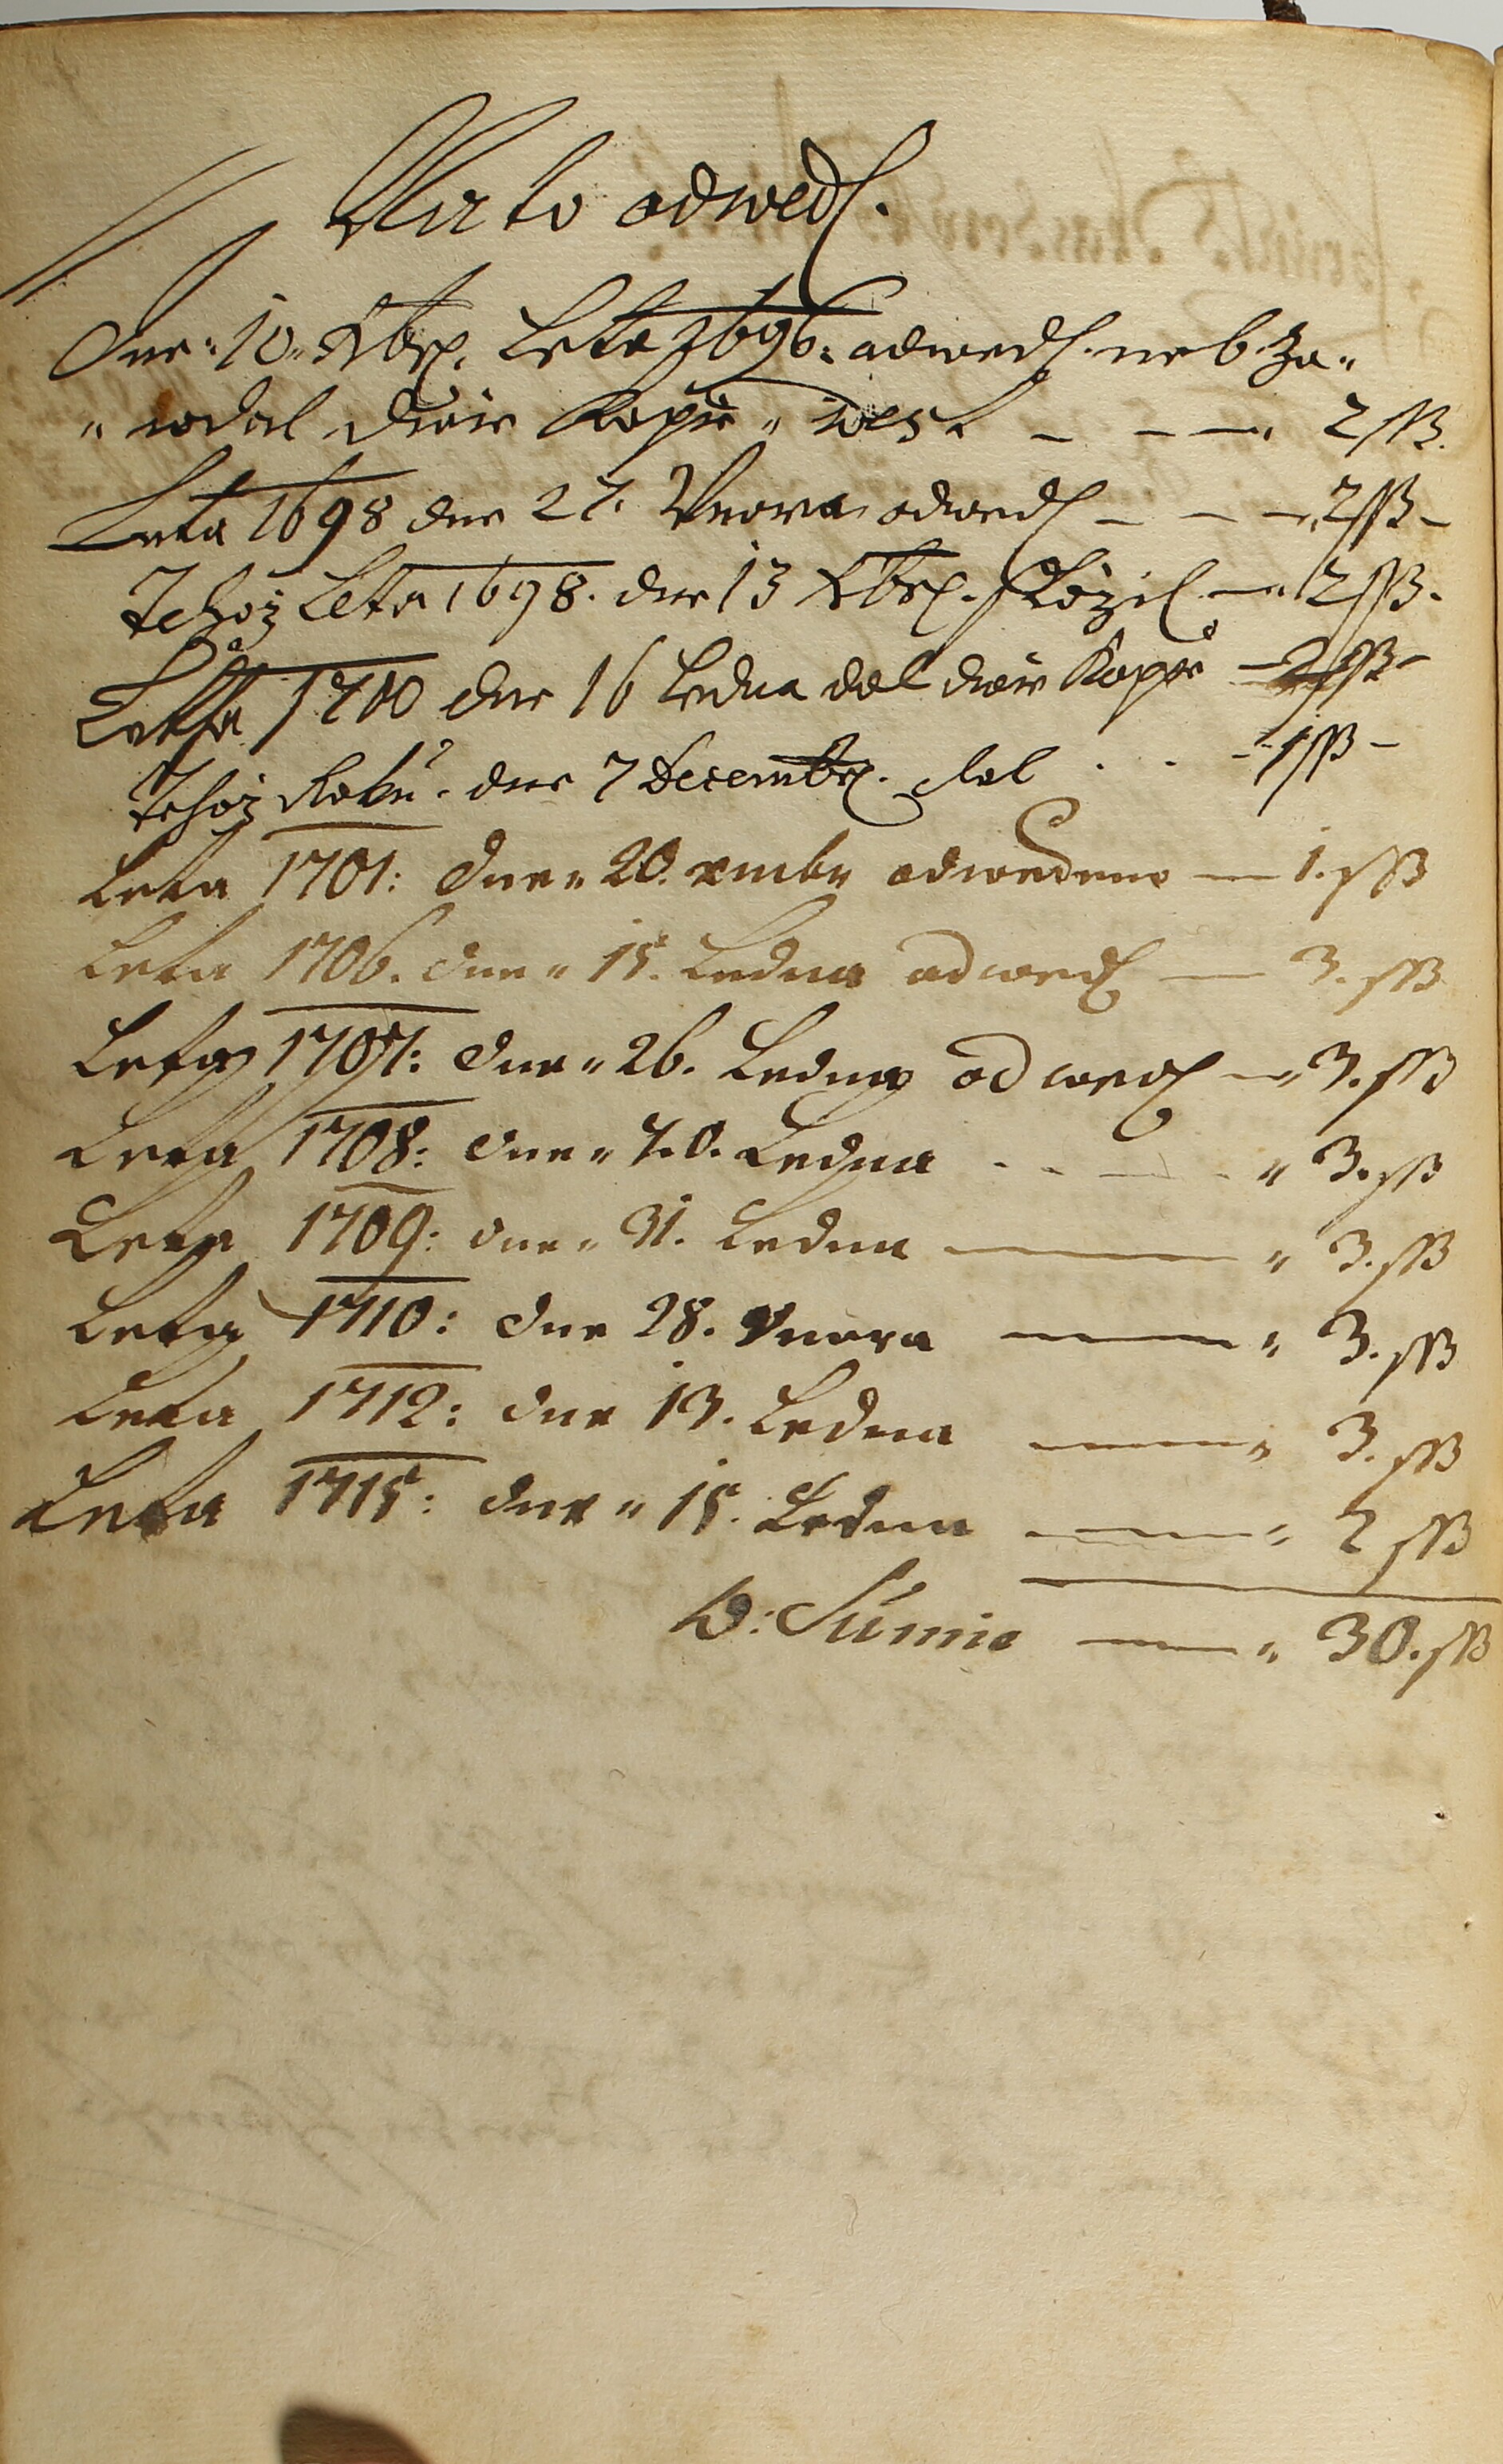 Na to odwedl.
Dne 10. Xbrz. Leta 1696. odwedl. neb Za-
wdal dwie Kopie 2 ss.
Leta 1698 dne 27. Vnora odwedl — — — 2 ss —
Tehoz Leta 1698. dne 13 Xbrz. složil — 2 ss.
Letha 1700 dne 16 Ledna dal dwie Kopie — 2 ss —
Tehoz Roku. dne 7 Decembr. dal . . - 1 ss —
Leta 1701: dne 20. xmbr odwedeno — 1. ss
Leta 1706. dne 15. Ledna odwedl — 3. ss
Leta 1707: dne 26. Ledna odwedl — 3. ss
Leta 1708: dne Ledna - - — - 3. ss
Leta 1709: dne 31. Ledna — 3. ss
Leta 1710: dne 28. Vnora — 3. ss
Leta 1712: dne 13. Ledna — 3. ss
Leta 1715: dne 15. Ledna — 2 ss
Sumie — 30. ss